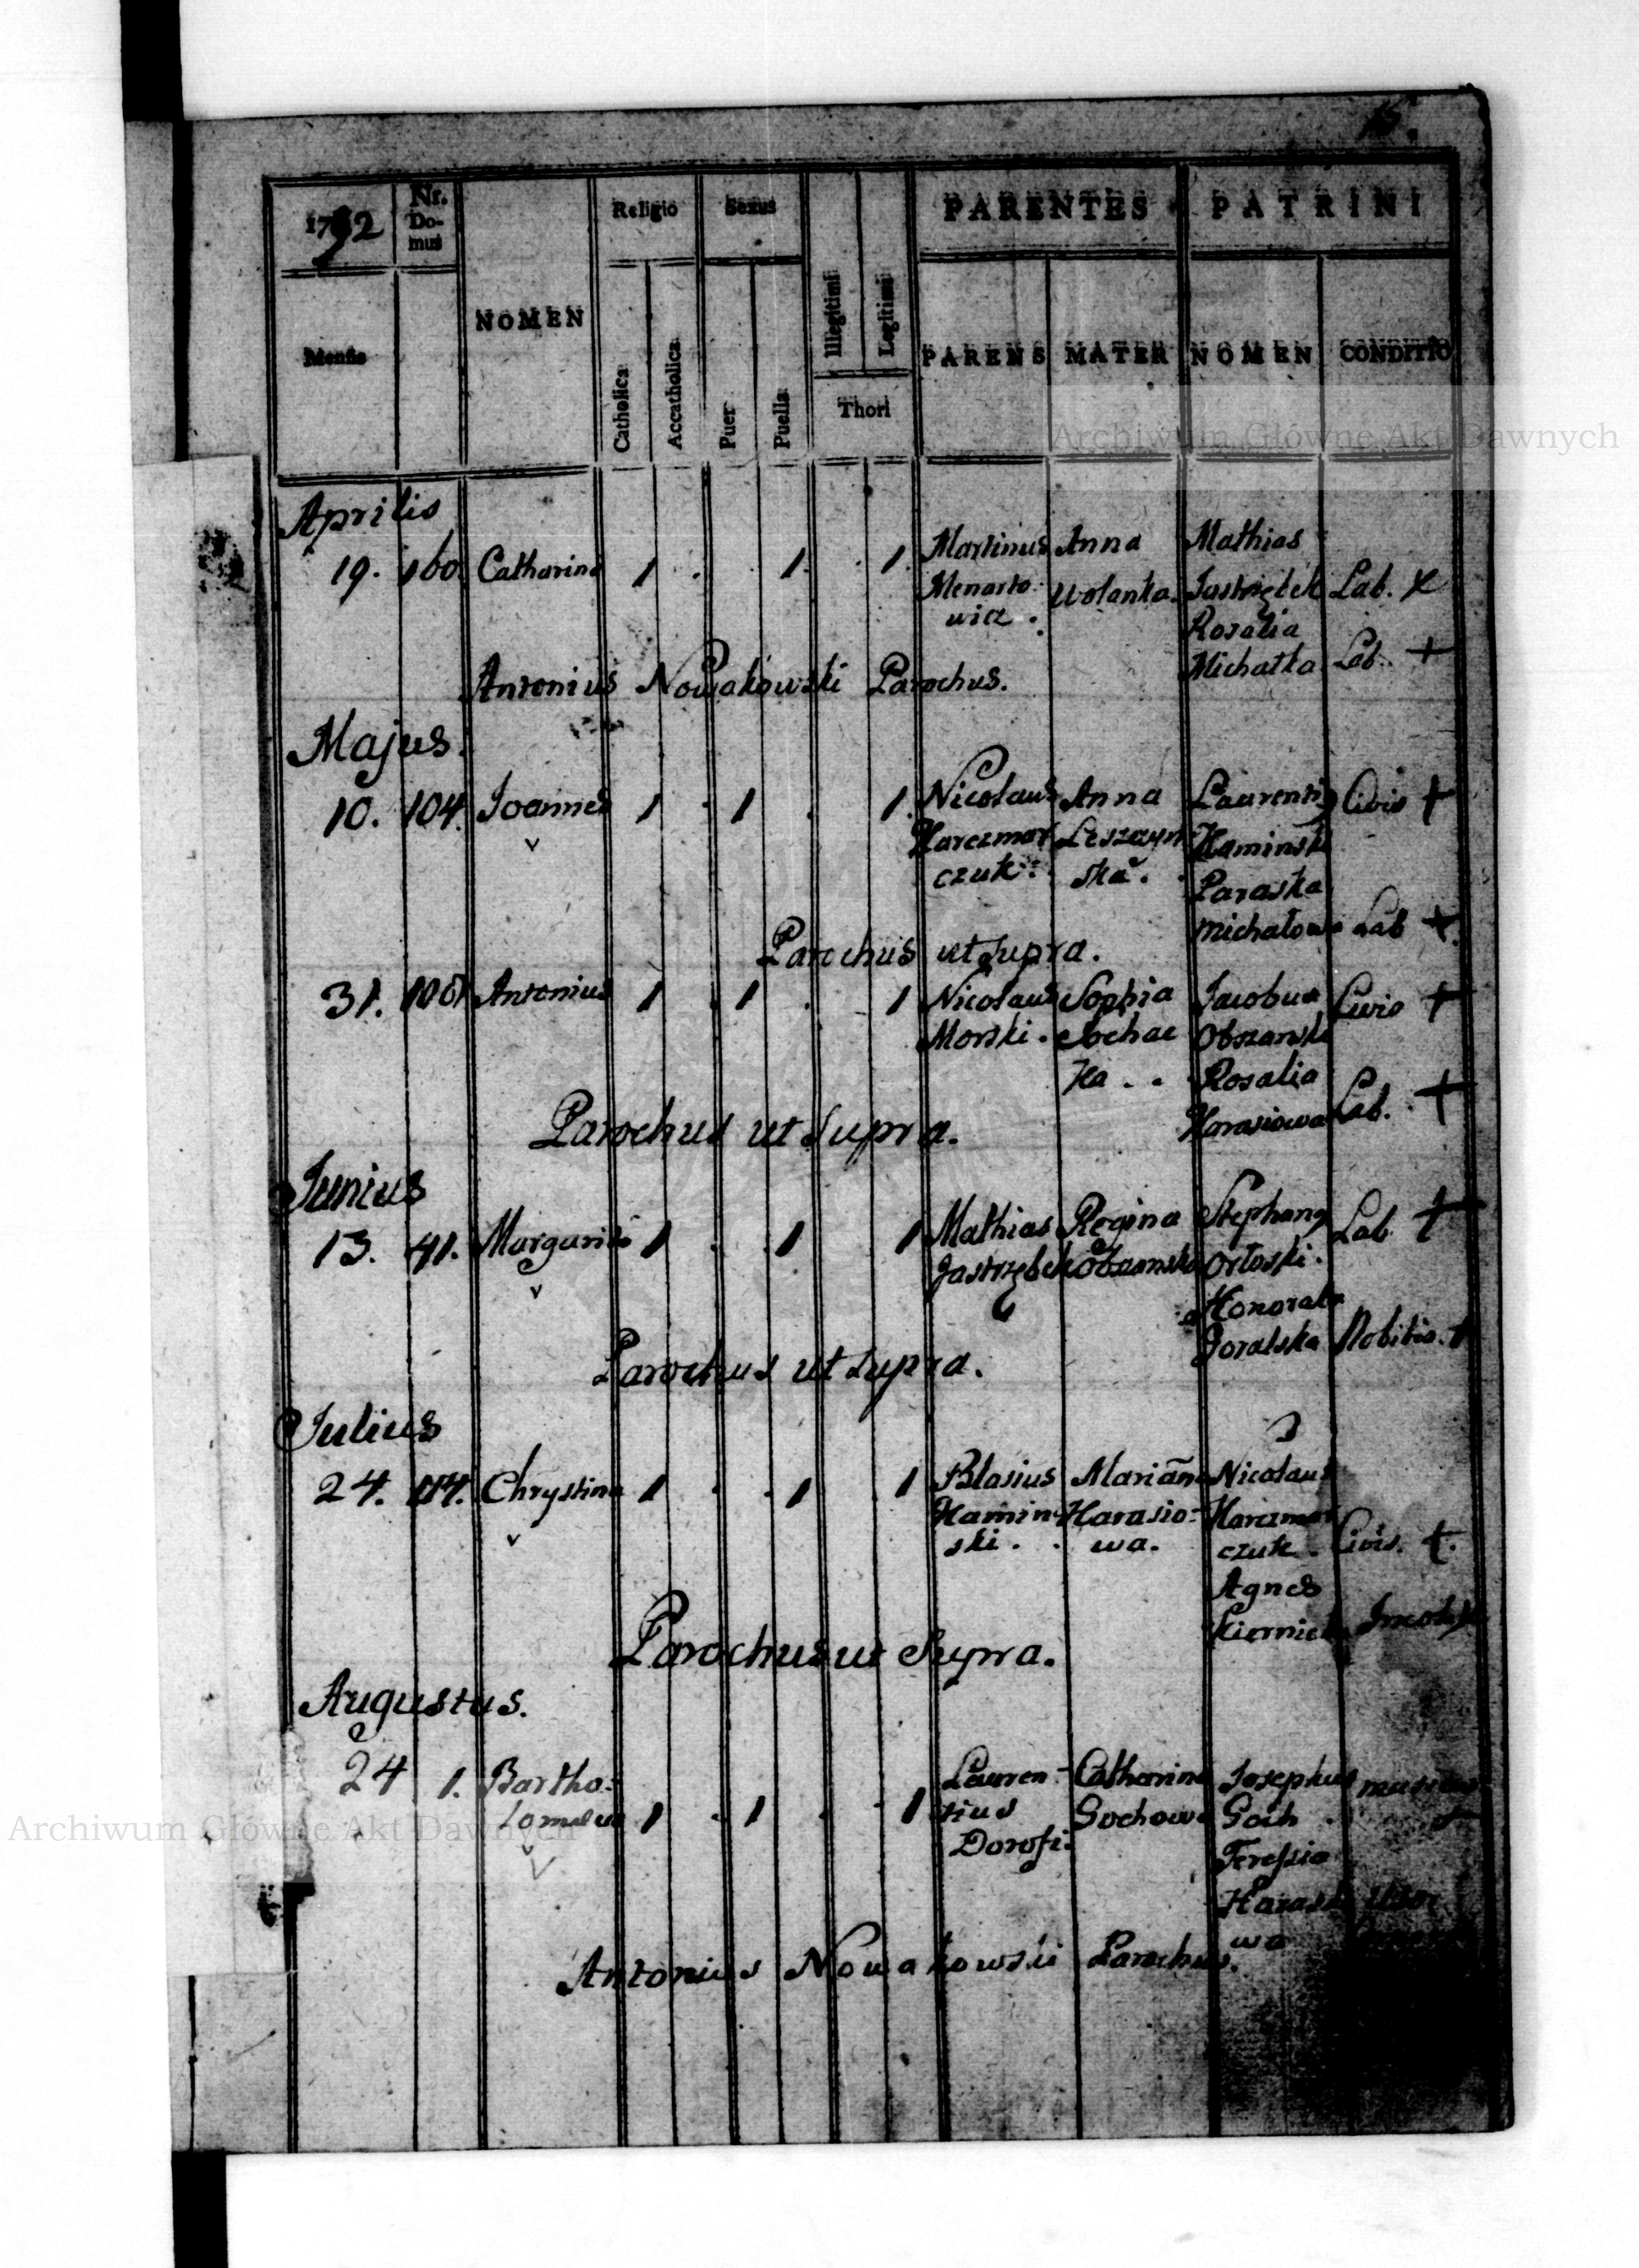 15.
1792 Nr. Domus NOMEN Religio Sexus PARENTES PATRINI
Mensis Catholica Accatholica Puer Puella Illegitimi Legitimi Thori PARENS MATER NOMEN CONDITIO
Archiwum Główne Akt Dawnych
Aprilis
19. 160. Catharina 1 . . 1. . 1. Martinus Anna Mathias
Menarto wolanka. Lab. +
wicz . Rosalia
Michałka Lab. +
Antonius Nowakowski Parochus.
Majus.
10. 104. Joannes 1 . 1 . 1. Nicolaus Anna Laurenti9 Civis +
Harczmar Leszczyn Kaminski
czuk. ska. Paraska
Michałowa Lab +
Parochus ut supra.
31. Antonius 1 . 1 . 1 Nicolaus Sophia Jacobus Civis +
Morski. Sochac Obszanski
ka . . Rosalia
Harasiowa Lab. +
Parochus ut Supra.
Junius
13. 41. Margarita 1 . . 1 1 Mathias Regina Stephan9 Lab. +
Jastrzębek Orłoski.
Honorata
Goralska Nobilis. +
Parochus ut supra.
Julius
24. 114. Chrystina 1 . . 1 1 Blasius Mariana Nicolaus
Kamin Harasio- Harczmar
ski . . wa. czuk. Civis. +.
Agnes
Parochus ut Supra.
Augustus.
24 1. Bartho- Lauren- Catharina Josephus
lomaeus 1 . 1 . . 1 tius Sochowa Goch .
Dorofi. Teressia
Harasio
wa
Antonius Nowakowski Parochus.
Archiwum Główne Akt Dawnych